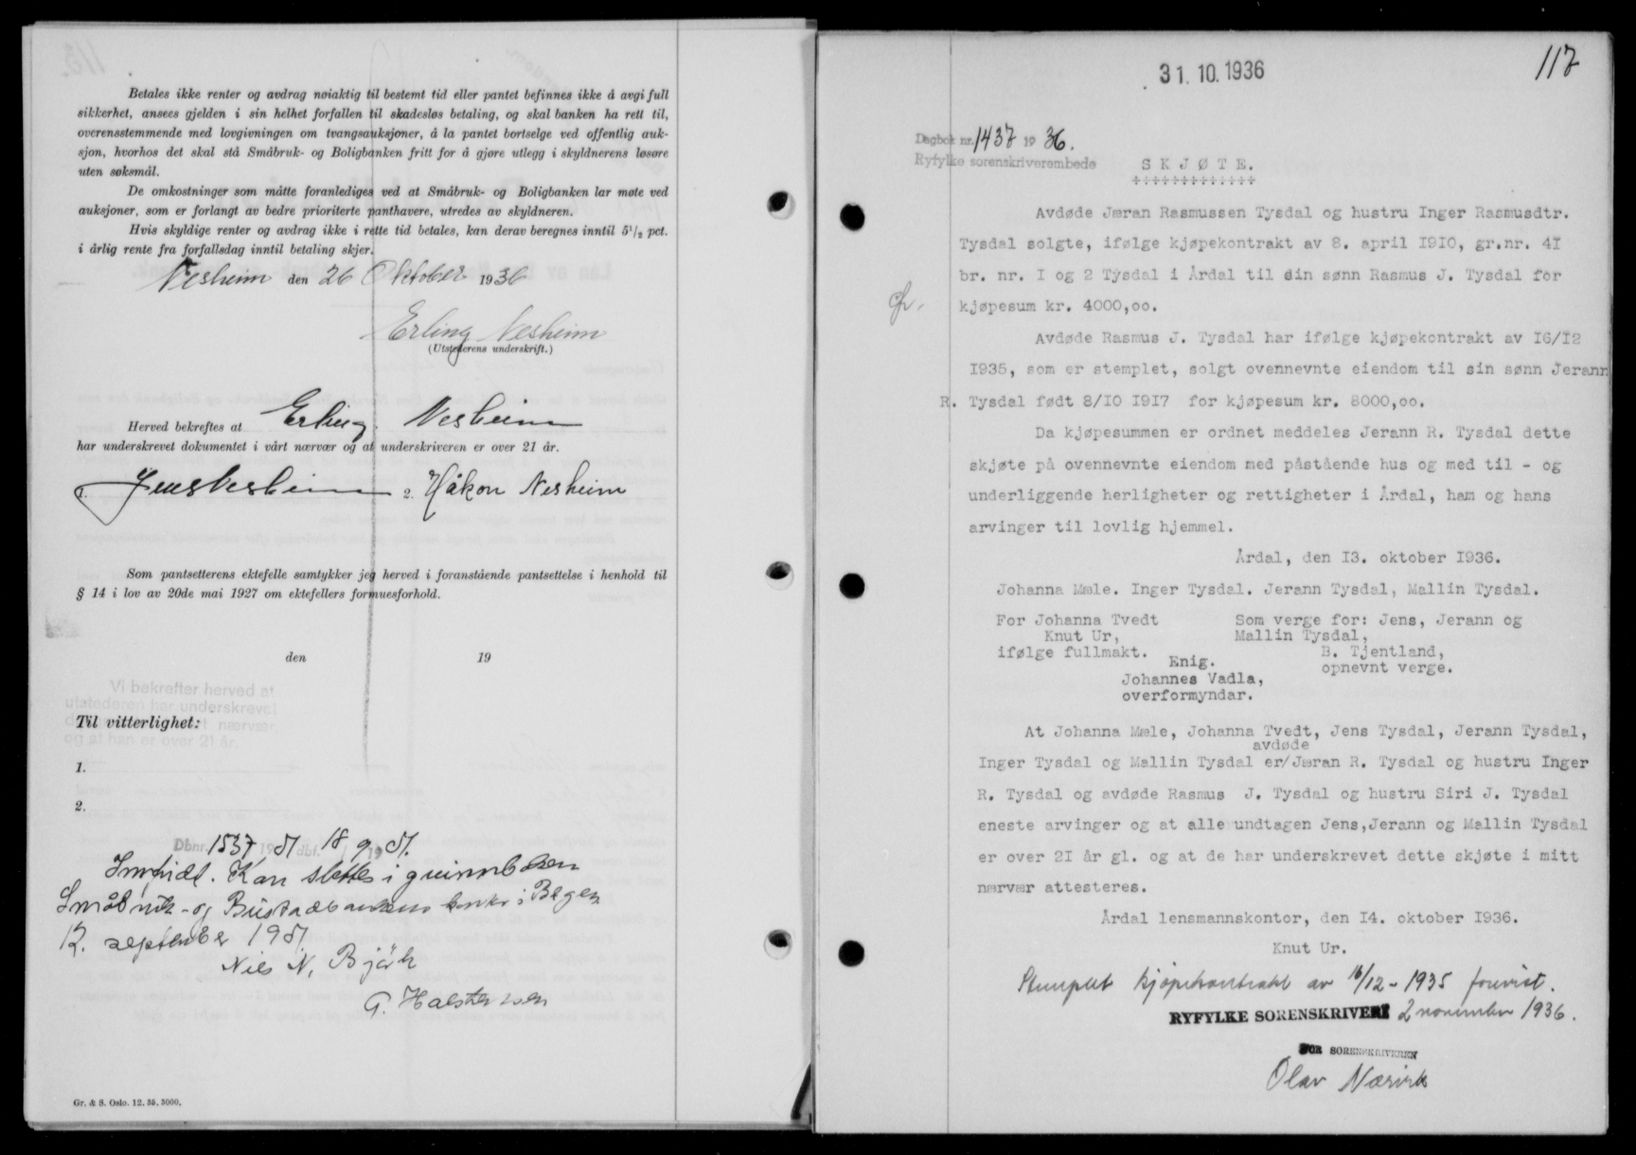 Betales ikke renter og avdrag nøiaktig til bestemt tid eller pantet befinnes ikke å avgi full
sikkerhet, ansees gjelden i sin helhet forfallen til skadesløs betaling, og skal banken ha rett til,
overensstemmende med lovgivningen om tvangsauksjoner, å la pantet bortselge ved offentlig auk-
sjon, hvorhos det skal stå Småbruk- og Boligbanken fritt for å gjøre utlegg i skyldnerens løsøre
uten søksmål.
De omkostninger som måtte foranlediges ved at Småbruk- og Boligbanken lar møte ved
auksjoner, som er forlangt av bedre prioriterte panthavere, utredes av skyldneren.
Hvis skyldige renter og avdrag ikke i rette tid betales, kan derav beregnes inntil 5½ pct.
i årlig rente fra forfallsdag inntil betaling skjer.
Nesheim den 26 Oktober 1936
Erling Nesheim
(Utstederens underskrift.)
Herved bekreftes at Erling Nesheim
har underskrevet dokumentet i vårt nærvær og at underskriveren er over 21 år.
1. Jens Nesheim 2. Håkon Nesheim
Som pantsetterens ektefelle samtykker jeg herved i foranstående pantsettelse i henhold til
§ 14 i lov av 20de mai 1927 om ektefellers formuesforhold.
den 19
Vi bekrefter herved at
utstederen har underskrevet
nærvær
og at han er over 21 år.
Til vitterlighet:
1.
2.
Dbnr. 1537 1951 dbf. 18/9 1951.
Innfridd. Kan slettes i grunnboken
Småbruk- og Bustadbankens kontor i Bergen
12. september 1951
Nils N. Bjørk
G. Halstensen
Gr. & S. Oslo. 12. 35. 3000.
31.10.1936
117
Dagbok nr. 1437 1936.
Ryfylke sorenskriverembede
SKJØTE.
Avdøde Jæran Rasmussen Tysdal og hustru Inger Rasmusdtr.
Tysdal solgte, ifølge kjøpekontrakt av 8. april 1910, gr.nr. 41
br. nr. 1 og 2 Tysdal i Årdal til sin sønn Rasmus J. Tysdal for
kjøpesum kr. 4000,oo.
Avdøde Rasmus J. Tysdal har ifølge kjøpekontrakt av 16/12
1935, som er stemplet, solgt ovennevnte eiendom til sin sønn Jerann
R. Tysdal født 8/10 1917 for kjøpesum kr. 8000,oo.
Da kjøpesummen er ordnet meddeles Jerann R. Tysdal dette
skjøte på ovennevnte eiendom med påstående hus og med til - og
underliggende herligheter og rettigheter i Årdal, ham og hans
arvinger til lovlig hjemmel.
Årdal, den 13. oktober 1936.
Johanna Mæle. Inger Tysdal. Jerann Tysdal, Mallin Tysdal.
For Johanna Tvedt Som verge for: Jens, Jerann og
Knut Ur, Mallin Tysdal,
ifølge fullmakt. B. Tjentland,
Enig. opnevnt verge.
Johannes Vadla,
overformyndar.
At Johanna Mæle, Johanna Tvedt, Jens Tysdal, Jerann Tysdal,
avdøde
Inger Tysdal og Mallin Tysdal er/Jæran R. Tysdal og hustru Inger
R. Tysdal og avdøde Rasmus J. Tysdal og hustru Siri J. Tysdal
eneste arvinger og at alle undtagen Jens, Jerann og Mallin Tysdal
er over 21 år gl. og at de har underskrevet dette skjøte i mitt
nærvær attesteres.
Årdal lensmannskontor, den 14. oktober 1936.
Knut Ur.
Stemplet kjøpekontrakt av 16/12-1935 forevist.
RYFYLKE SORENSKRIVERI 2 november 1936.
FOR SORENSKRIVEREN
Olav Nærvik